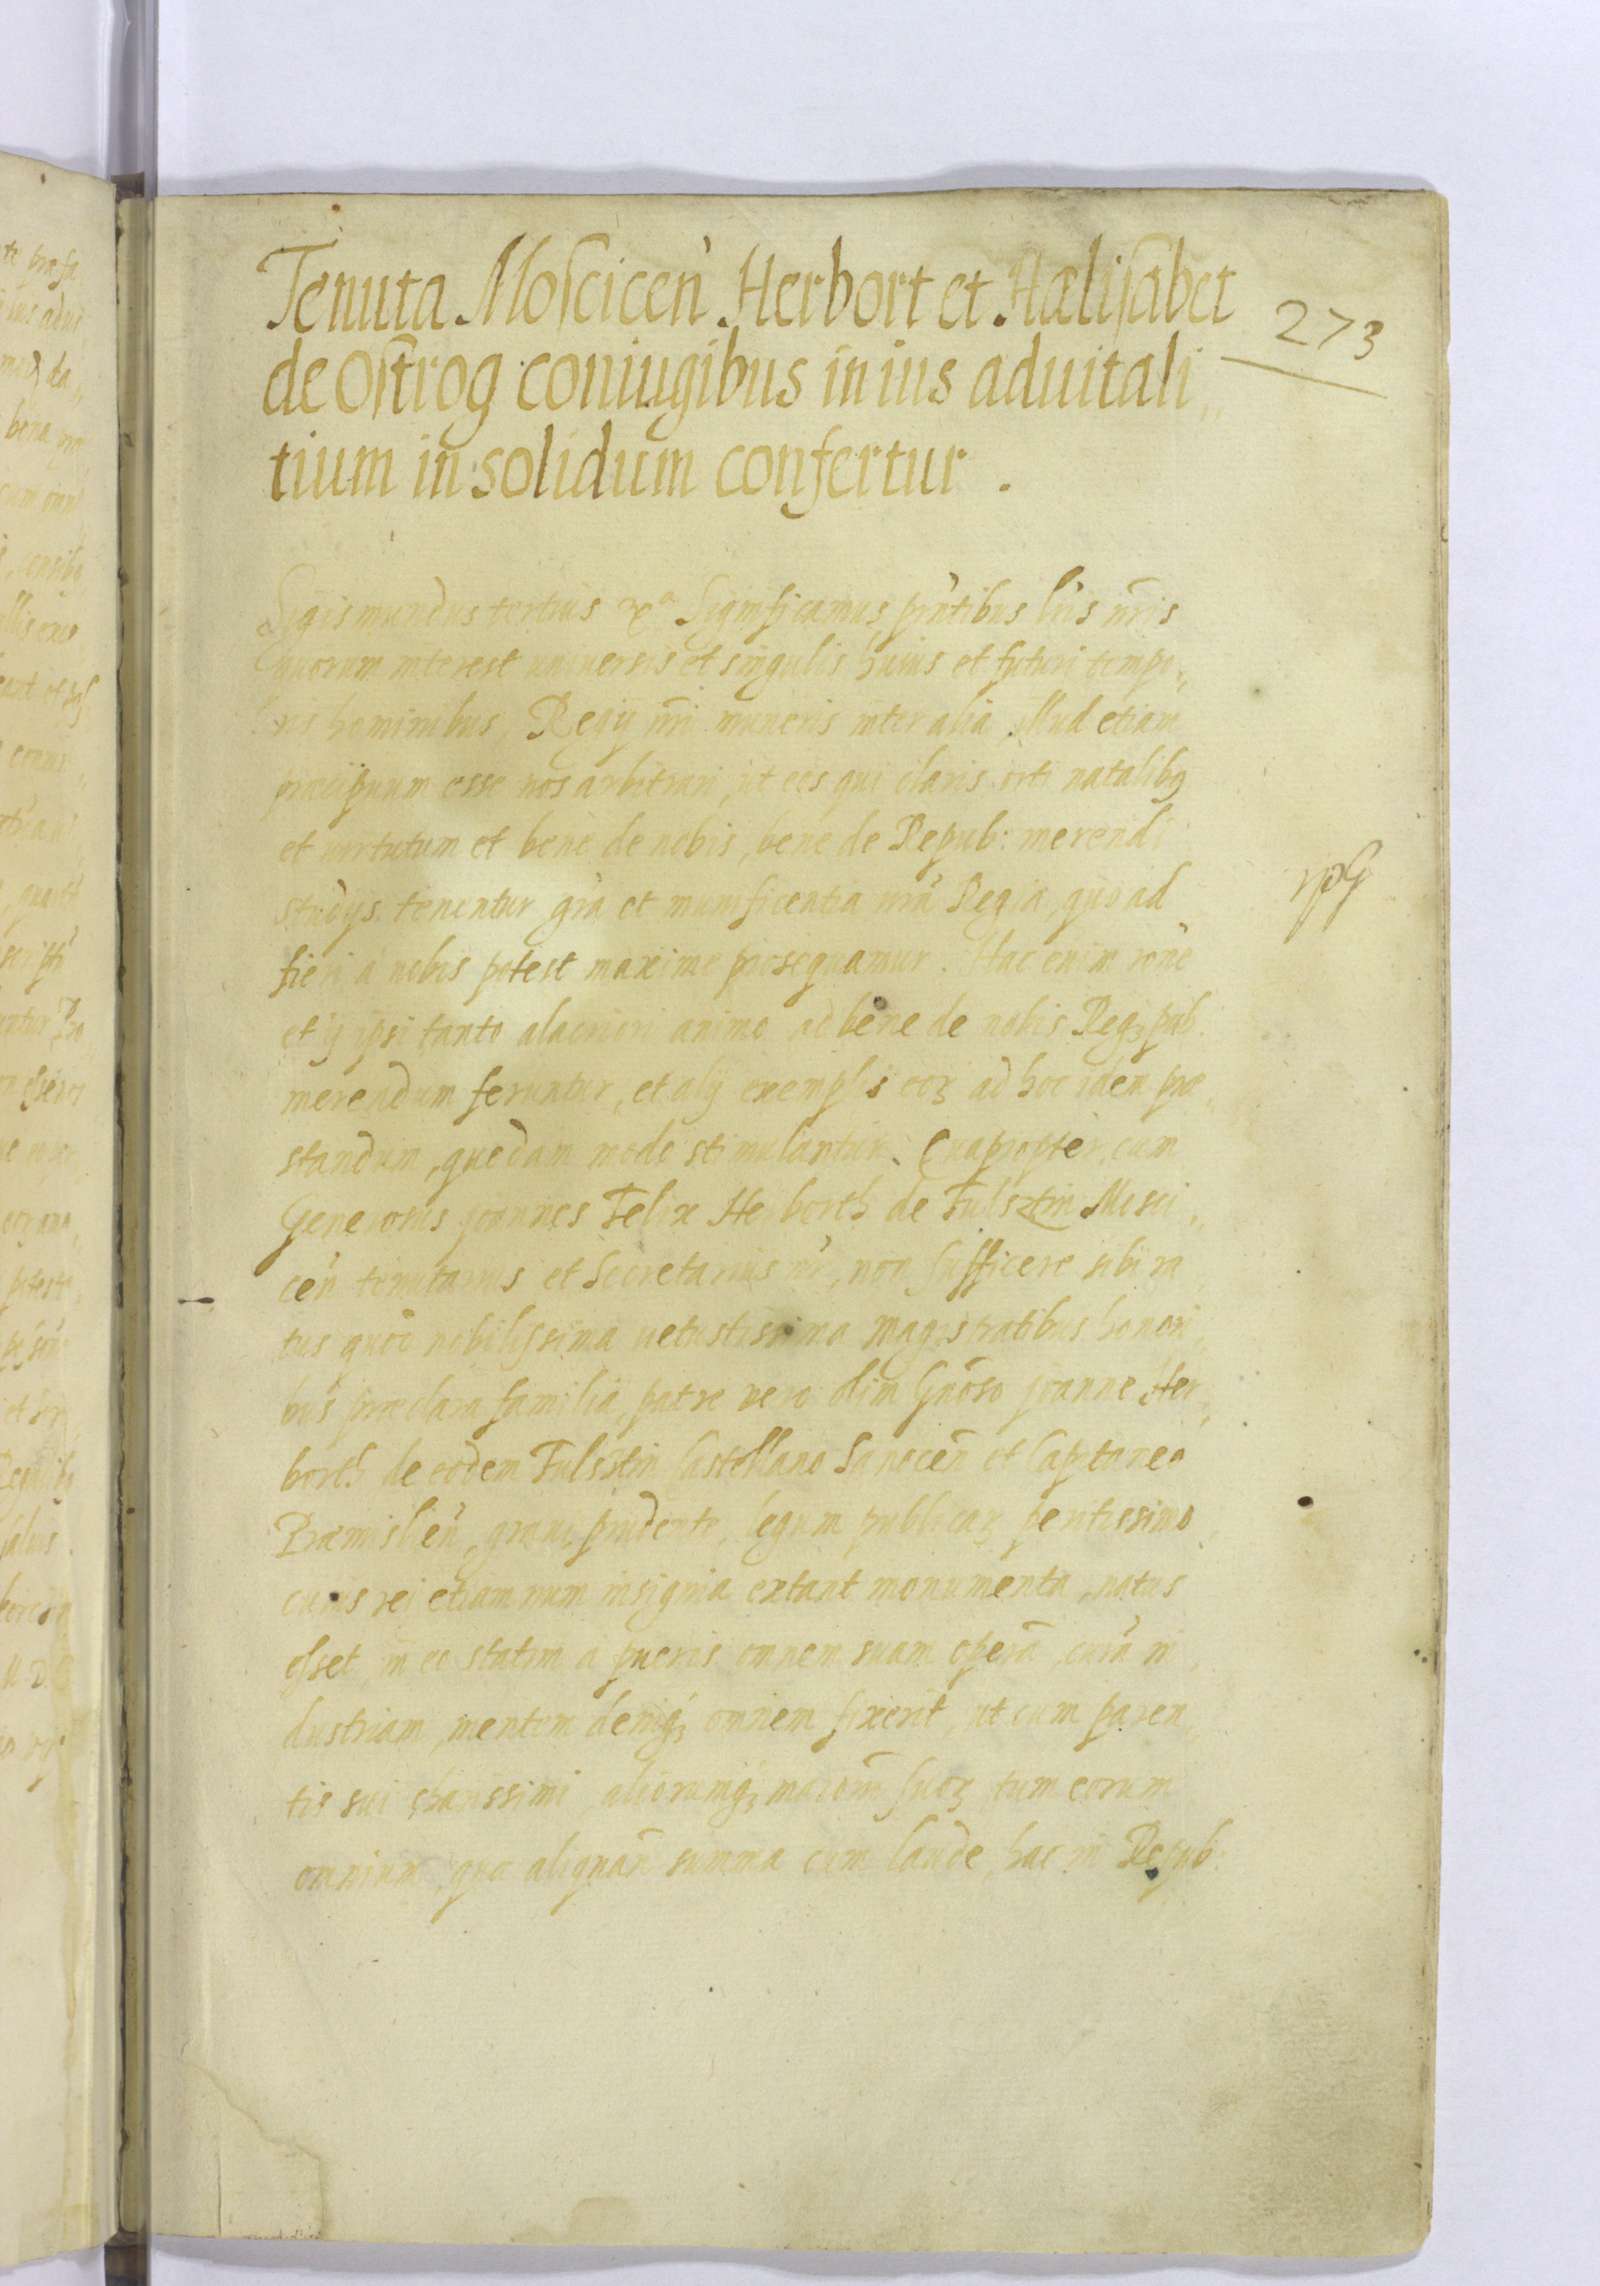 Tenuta Moscicen̄ Herbort et Hælisabet
273
de Ostrog coniugibus in ius aduitali„
tium in solidum confertur.
Sigismundus tertius &cᵃ Significamus pn̄tibus lr̄is nr̄is
quorum interest uniuersis et singulis huius et futuri tempo„
ris hominibus, Regij nr̄i muneris inter alia illud etiam
præcipuum esse nos arbitrari, ut eos qui claris orti natalibꝫ
et virtutum et bene de nobis, bene de Repub: merendi
studijs tenentur, gr̄a et munificentia nr̄a Regia, quo ad
fieri a nobis potest maxime prosequamur. Hac enim rōne
et ij ipsi tanto alacriori animo ad bene de nobis Reqꝫ pub
merendum feruntur, et alij exemplis eoꝝ ad hoc idem præ„
standum, quodam modo stimulantur. Quapropter cum
Generosus Joannes Felix Herborth de Fulsztin Mosci„
cen̄ tenutarius et Secretarius nr̄, non sufficere sibi ra
tus quod nobilissima uetustissima magistratibus honori„
bus præclara familia, patre vero olim Gn̄oso Joanne Her„
borth de eodem Fulsstin Castellano Sanocen̄ et Capitaneo
Præmislien̄, graui, prudente, legum publicaꝝ peritissimo
cuius rei etiam num insignia extant monumenta, natus
esset, in eo statim a pueris omnem suam operā, curā in„
dustriam, mentem deniqꝫ omnem fixerit, ut cum paren„
tis sui charissimi aliorumqꝫ maiorū suoꝝ, tum eorum
omnium, qui aliquan̄ summa cum laude, hac in Repub